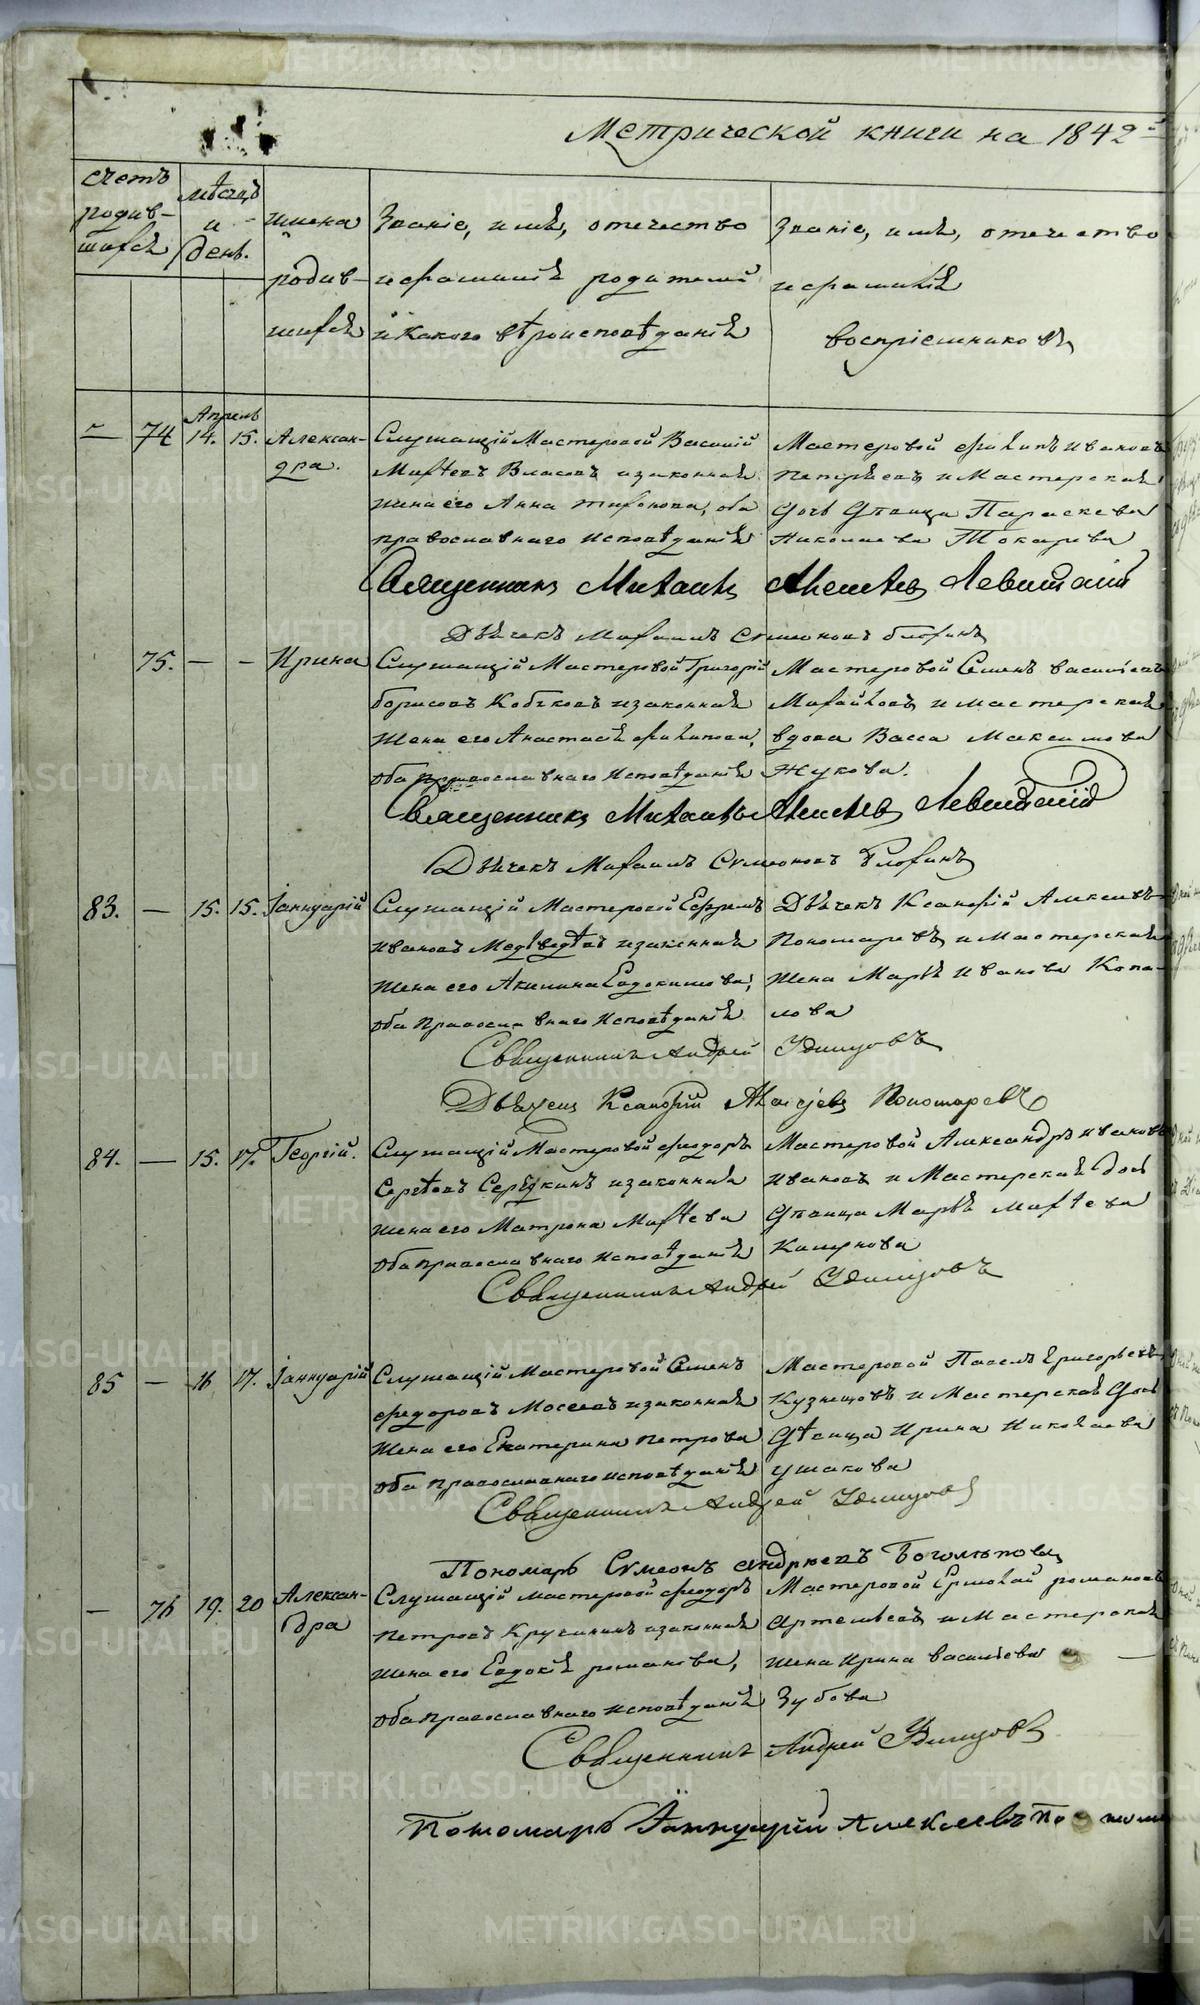 Метрической книги на 1842й
счетъ родив- шихся
мѣсяцъ и день.
имена родив- шихся
Званіе, имя, отечество и фамилія родителей и какого вѣроисповѣданія
Званіе, имя, отечество и фамилія воспріемниковъ
Апрель
— 74 14. 15. Алексан-
дра.
Служащій Мастеровой Василій
Матѳеевъ Власовъ и законная
жена его Анна оба
православнаго исповѣданія
Мастеровой Филипъ Ивановъ
и Мастерская
дочь дѣвица Параскева
Николаева Токарева
Священникъ Михаилъ Алексѣевъ Левитскій
Дьячекъ Михаилъ Симеоновъ
75. — — Ирина
Служащій Мастеровой Григорій
Борисовъ Кобяковъ и законная
жена его Анастасія Филипова,
оба православнаго исповѣданія
Мастеровой Семенъ Васильевъ
Михайловъ и мастерская
вдова Васса Максимова
Жукова.
Священникъ Михаилъ Алексѣевъ Левитскій
Дьячекъ Михаилъ Симеоновъ
83. — 15. 15. Іаннуарій
Служащій Мастеровой Ефремъ
Ивановъ Медведевъ и законная
жена его Акилина Евдокимова,
оба Православнаго исповѣданія
Дьячекъ Ксанофій Алексѣевъ
Пономаревъ и Мастерская
жена Марья Иванова Копа-
лова
Священникъ Андрей Удинцовъ
Дьячекъ Ксанофій Алексѣевъ Пономаревъ
84. — 15. 17. Георгій.
Служащій Мастеровой Ѳеодоръ
Сергѣевъ Середкинъ и законная
жена его Матрона Матѳеева
оба православнаго исповѣданія
Мастеровой Александръ Ивановъ
Ивановъ и Мастерская дочь
дѣвица Марья Матѳеева
Священникъ Андрей Удинцовъ
85 — 16 17. Іаннуарій
Служащій Мастеровой Семенъ
Ѳедоровъ Мосеевъ и законная
жена его Екатерина Петрова
оба православнаго исповѣданія
Мастеровой Павелъ Григорьевъ
Кузнецовъ и Мастерская дочь
дѣвица Ирина Николаева
Ушакова
Священникъ Андрей Удинцовъ
Пономарь Симеонъ Андреевъ Боголѣповъ
— 76 19. 20 Алексан-
дра
Служащій мастеровой Ѳеодоръ
Петровъ и законная
жена его Евдокія Романова,
оба православнаго исповѣданія
Мастеровой Ермолай Романовъ
Артемьевъ и Мастерская
жена Ирина Васильева
Зубова
Священникъ Андрей Удинцовъ
Пономарь Іаннуарій Алексеевъ
METRIKI.GASO-URAL.RU